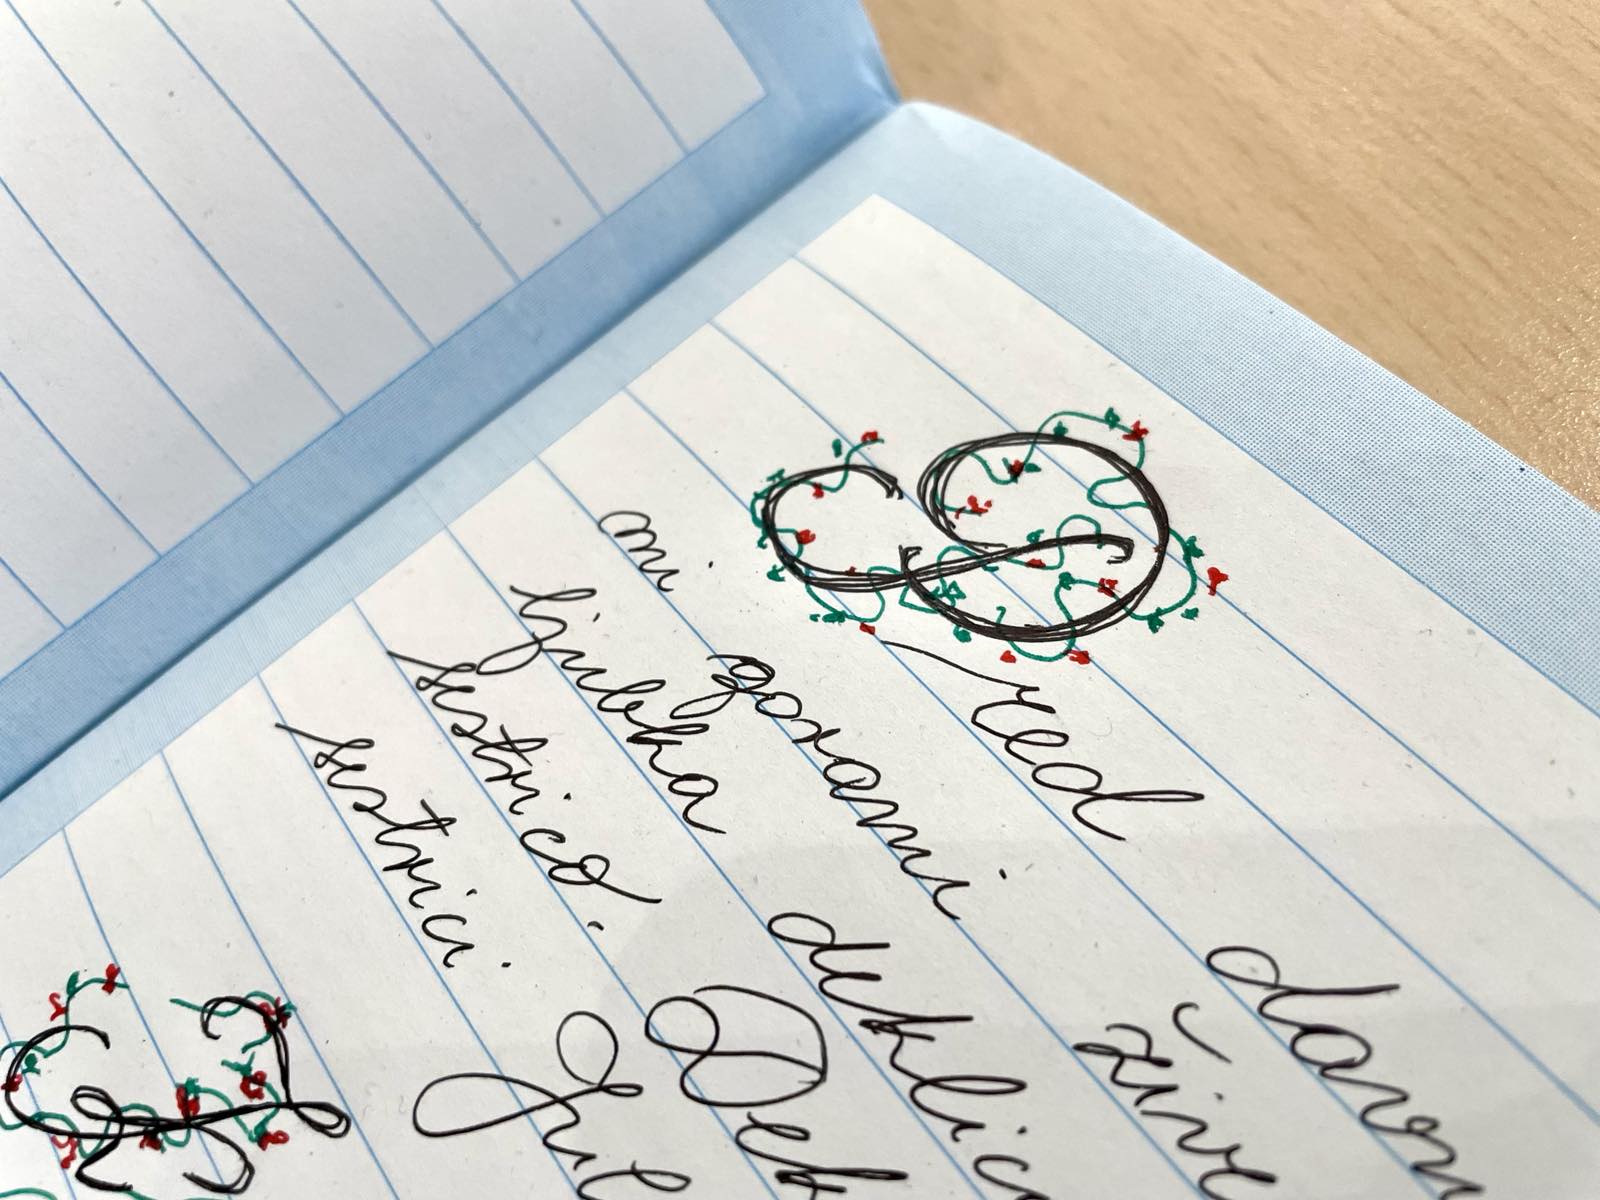 Pred davn
mi gorami žive
ljubka deklic
sestrico. Dek
sestrici. Jul